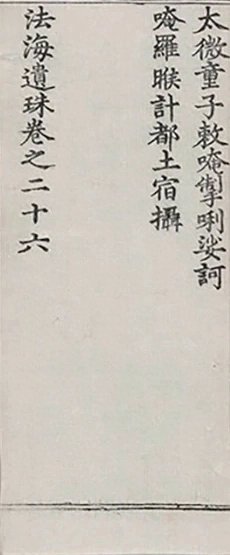 太微童子敕唵㨘唎娑訶
唵羅睺計都土宿攝
法海遺珠卷之二十六